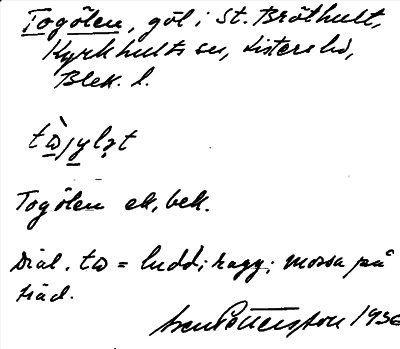 Togölen, göl i St. Bröthult,
Kyrkhults sn, Listers hd,
Blek. l.
Togölen ek. bek.
Dial. tω = ludd; ragg; mossa på
träd.
Sven Pettersson 1936